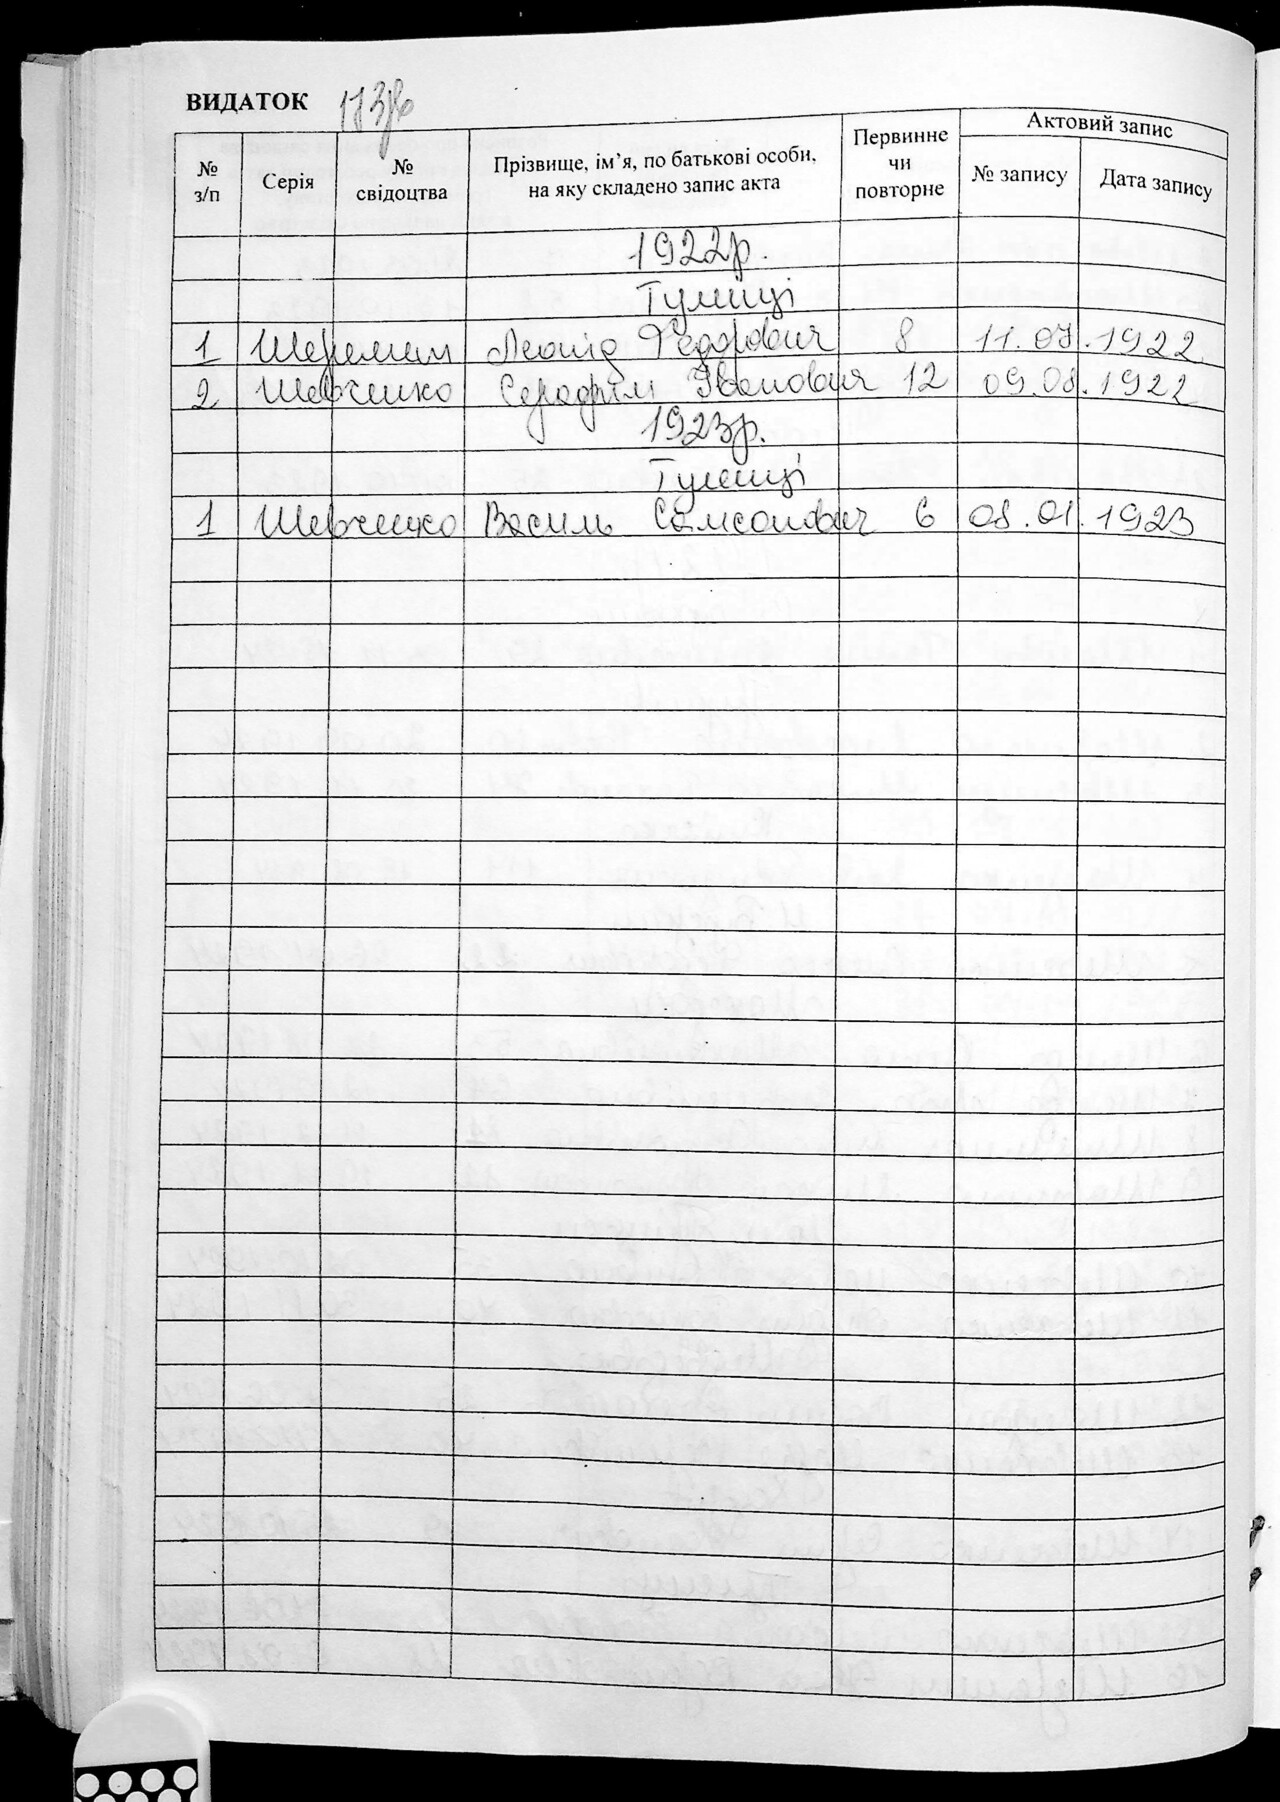 ВИДАТОК 173зв
№ з/п Серія № свідоцтва Прізвище, ім’я, по батькові особи, на яку складено запис акта Первинне чи повторне Актовий запис № запису Дата запису
1922р.
Тулинці
1 Шеремет Леонід Федорович 8 11.07.1922
2 Шевченко Серафім Іванович 12 09.08.1922
1923р.
Тулинці
1 Шевченко Василь Самсонович 6 08.01.1923